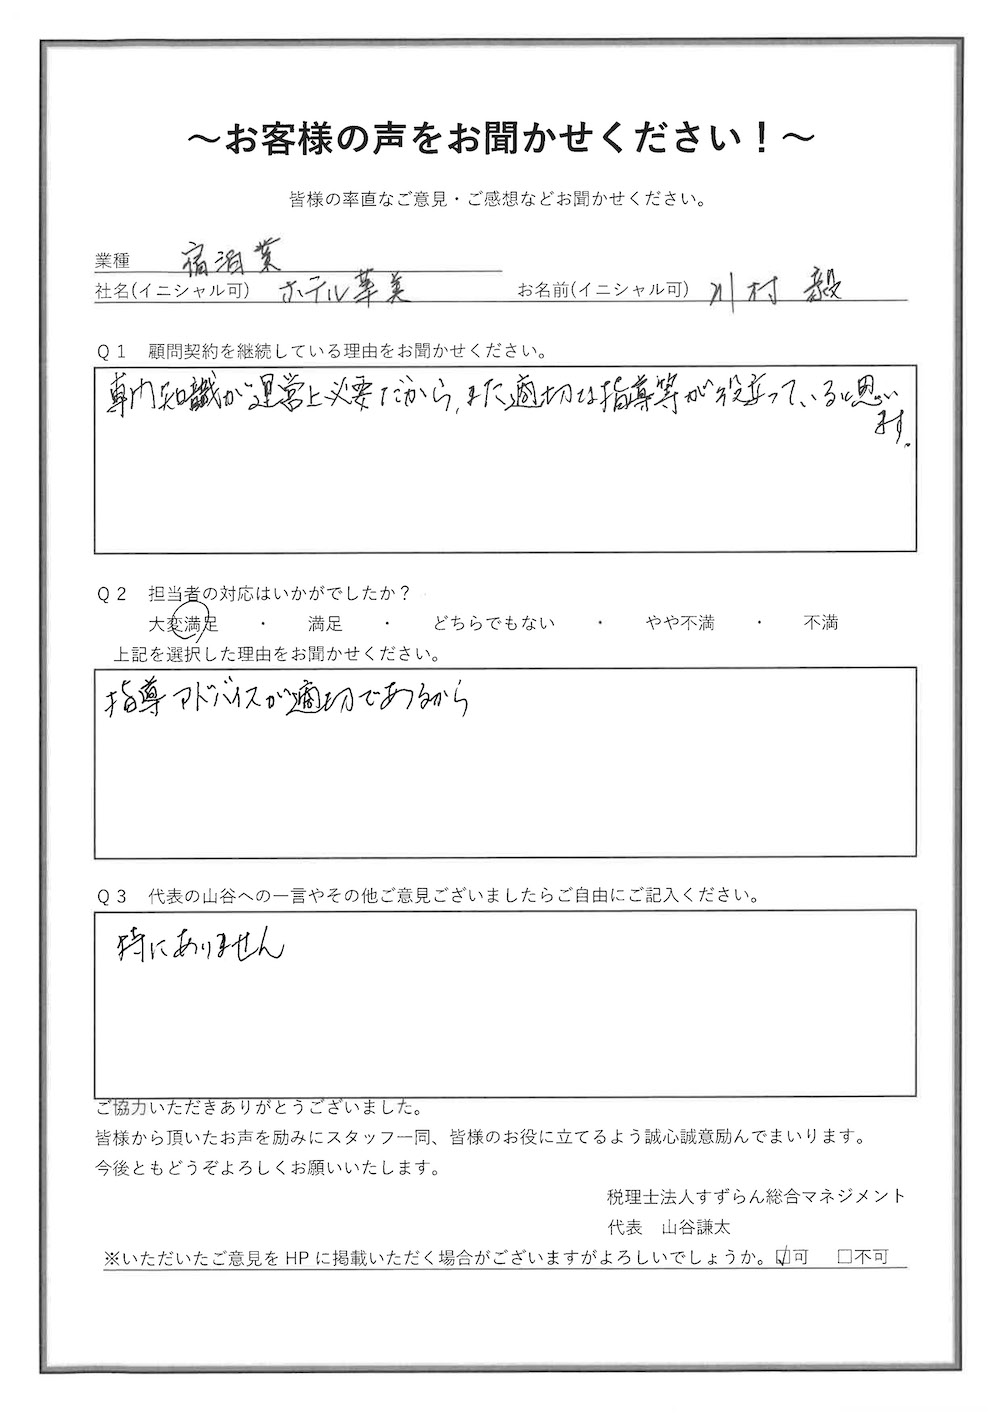 ～お客様の声をお聞かせください！～
皆様の率直なご意見・ご感想などお聞かせください。
業種 宿泊業
社名(イニシャル可) ホテル華美 お名前(イニシャル可) 川村 毅
Q1 顧問契約を継続している理由をお聞かせください。
専門知識が運営上必要だから、また適切な指導等が役立っていると思い
ます。
Q2 担当者の対応はいかがでしたか？
大変満足 ・ 満足 ・ どちらでもない ・ やや不満 ・ 不満
上記を選択した理由をお聞かせください。
指導アドバイスが適切であるから
Q3 代表の山谷への一言やその他ご意見ございましたらご自由にご記入ください。
特にありません
ご協力いただきありがとうございました。
皆様から頂いたお声を励みにスタッフ一同、皆様のお役に立てるよう誠心誠意励んでまいります。
今後ともどうぞよろしくお願いいたします。
税理士法人すずらん総合マネジメント
代表 山谷謙太
※いただいたご意見をHPに掲載いただく場合がございますがよろしいでしょうか。☑可 □不可